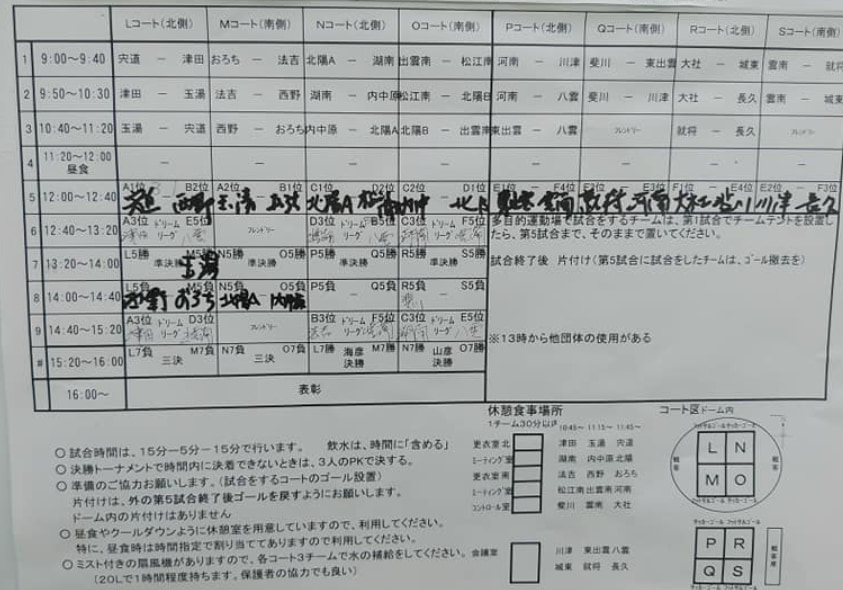 Lコート(北側) Mコート(南側) Nコート(北側) Oコート(南側) Pコート(北側) Qコート(南側) Rコート(北側) Sコート(南側)
1 9:00～9:40 宍道 － 津田 おろち － 法吉 北陽A － 湖南 出雲南 － 松江南 河南 － 川津 斐川 － 東出雲 大社 － 城東 雲南 － 就将
2 9:50～10:30 津田 － 玉湯 法吉 － 西野 湖南 － 内中原 松江南 － 北陽B 河南 － 八雲 斐川 － 川津 大社 － 長久 雲南 － 城東
3 10:40～11:20 玉湯 － 宍道 西野 － おろち 内中原 － 北陽A 北陽B － 出雲南 東出雲 － 八雲 フレンドリー 就将 － 長久 フレンドリー
4 11:20～12:00 － － － － － － － －
昼食
5 12:00～12:40 A1位 B2位 A2位 － B1位 C1位 D2位 C2位 － D1位 E1位 F4位 E4位 F3位
宍道 西野 北陽A 河南 大社 斐川 川津 長久
6 12:40～13:20 A3位 ドリームリーグ E5位 フレンドリー D3位 ドリームリーグ B5位 C3位 ドリームリーグ F5位
多目的運動場で試合をするチームは、第1試合でチームテントを設置し
たら、第5試合まで、そのままで置いてください。
7 13:20～14:00 L5勝 準決勝 M5勝 N5勝 準決勝 O5勝 P5勝 準決勝 Q5勝 R5勝 準決勝 S5勝
玉湯
試合終了後 片付け(第5試合に試合をしたチームは、ゴール撤去を)
8 14:00～14:40 L5負 M5負 N5負 O5負 P5負 － Q5負 R5負 － S5負
西野 おろち 北陽A 内中原
斐川
9 14:40～15:20 A3位 ドリームリーグ D3位 フレンドリー B3位 ドリームリーグ F5位 C3位 ドリームリーグ E5位
津田 湖南 八雲
※13時から他団体の使用がある
# 15:20～16:00 L7負 三決 M7負 N7負 三決 O7負 L7勝 海彦決勝 M7勝 N7勝 山彦決勝 O7勝
16:00～ 表彰
○ 試合時間は、15分ー5分－15分で行います。 飲水は、時間に「含める」
○ 決勝トーナメントで時間内に決着できないときは、3人のPKで決する。
○ 準備のご協力お願いします。(試合をするコートのゴール設置)
片付けは、外の第5試合終了後ゴールを戻すようにお願いします。
ドーム内の片付けはありません
○ 昼食やクールダウンように休憩室を用意していますので、利用してください。
特に、昼食時は時間指定で割り当ててありますので利用してください。
○ ミスト付きの扇風機がありますので、各コート3チームで水の補給をしてください。
(20Lで1時間程度持ちます。保護者の協力でも良い)
休憩食事場所
1チーム30分以内 10:45～ 11:15～ 11:45～
更衣室北 津田 玉湯 宍道
ミーティング室 湖南 内中原 北陽
更衣室南 法吉 西野 おろち
ミーティング室 松江南 出雲南 河南
コントロール室 斐川 雲南 大社
会議室 川津 東出雲 八雲
城東 就将 長久
コート図 ドーム内
フットサルゴール サッカーゴール
観客 L N 観客
M O
フットサルゴール サッカーゴール
サッカーゴール フットサルゴール
P R
Q S
観客席
サッカーゴール フットサルゴール